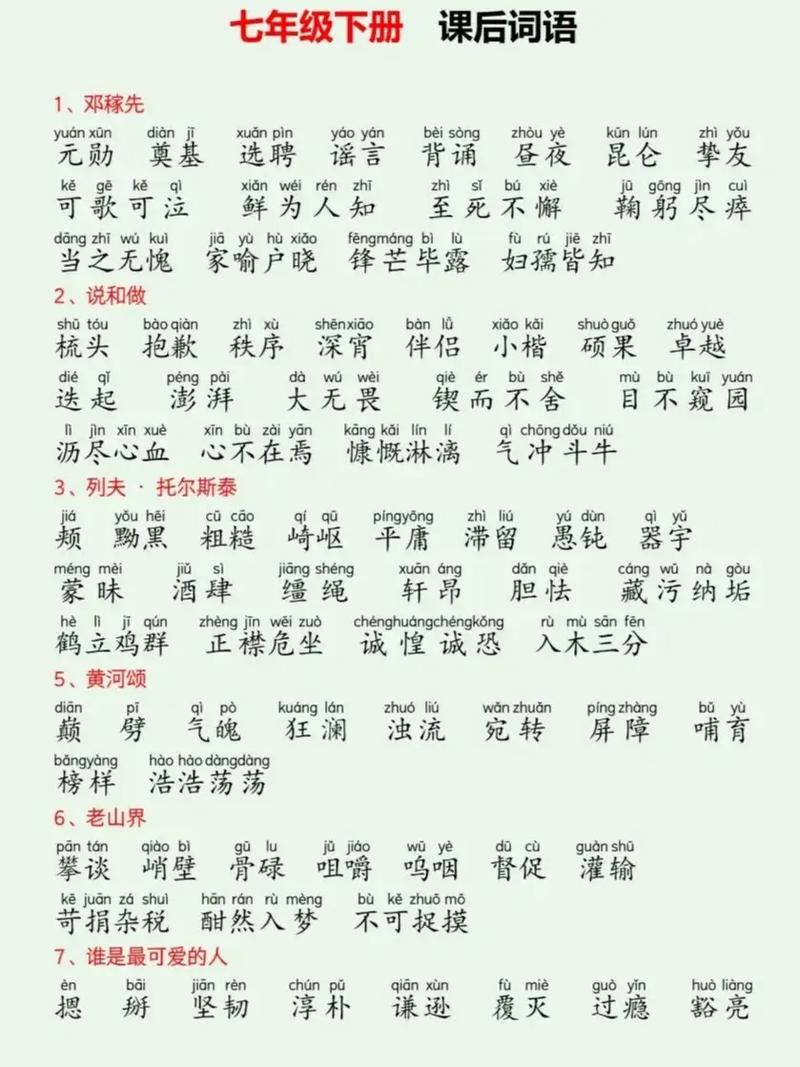 七年级下册 课后词语
1、邓稼先
yuán xūn diàn jī xuǎn pìn yáo yán bèi sòng zhòu yè kūn lún zhì yǒu
元勋 奠基 选聘 谣言 背诵 昼夜 昆仑 挚友
kě gē kě qì xiǎn wéi rén zhī zhì sǐ bú xiè jū gōng jìn cuì
可歌可泣 鲜为人知 至死不懈 鞠躬尽瘁
dāng zhī wú kuì jiā yù hù xiǎo fēngmáng bì lù fù rú jiē zhī
当之无愧 家喻户晓 锋芒毕露 妇孺皆知
2、说和做
shū tóu bào qiàn zhì xù shēnxiāo bàn lǚ xiǎo kǎi shuò guǒ zhuó yuè
梳头 抱歉 秩序 深宵 伴侣 小楷 硕果 卓越
dié qǐ péng pài dà wú wèi qiè ér bù shě mù bù kuī yuán
迭起 澎湃 大无畏 锲而不舍 目不窥园
lì jìn xīn xuè xīn bù zài yān kāng kǎi lín lí qì chōng dǒu niú
沥尽心血 心不在焉 慷慨淋漓 气冲斗牛
3、列夫·托尔斯泰
jiá yǒu hēi cū cāo qí qū píngyōng zhì liú yú dùn qì yǔ
颊 黝黑 粗糙 崎岖 平庸 滞留 愚钝 器宇
méng mèi jiǔ sì jiāng shéng xuān áng dǎn qiè cáng wū nà gòu
蒙昧 酒肆 缰绳 轩昂 胆怯 藏污纳垢
hè lì jī qún zhèng jīn wēi zuò chénghuángchéngkǒng rù mù sān fēn
鹤立鸡群 正襟危坐 诚惶诚恐 入木三分
5、黄河颂
diān pī qì pò kuáng lán zhuó liú wǎn zhuǎn píng zhàng bǔ yù
巅 劈 气魄 狂澜 浊流 宛转 屏障 哺育
bǎngyàng hào hào dàngdàng
榜样 浩浩荡荡
6、老山界
pān tán qiào bì gū lu jǔ jiáo wū yè dū cù guàn shū
攀谈 峭壁 骨碌 咀嚼 呜咽 督促 灌输
kē juān zá shuì hān rán rù mèng bù kě zhuō mō
苛捐杂税 酣然入梦 不可捉摸
7、谁是最可爱的人
èn bāi jiān rèn chún pǔ qiān xùn fù miè guò yǐn huò liàng
摁 掰 坚韧 淳朴 谦逊 覆灭 过瘾 豁亮